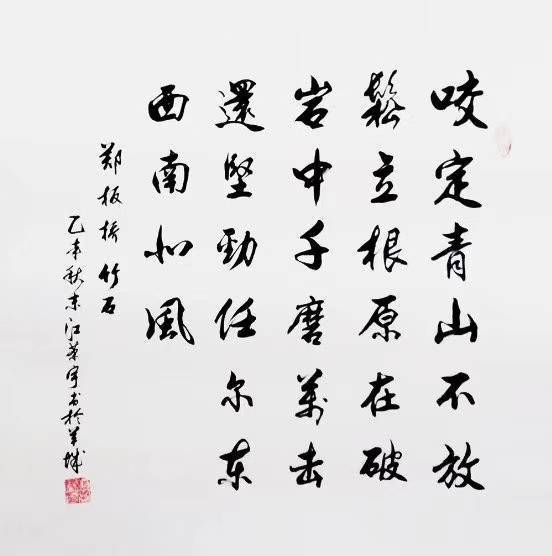 咬定青山不放
鬆立根原在破
岩中千磨萬击
還堅勁任尔东
西南北風
郑板桥竹石
乙未秋东江宇书於羊城